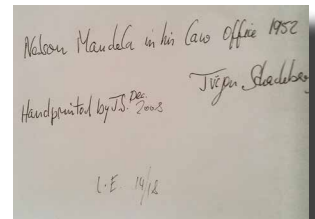 Nelson Mandela in his Law Office 1952
Jürgen Schadeberg
Handprinted by J.S. Dec. 2008
L.E. 14/18